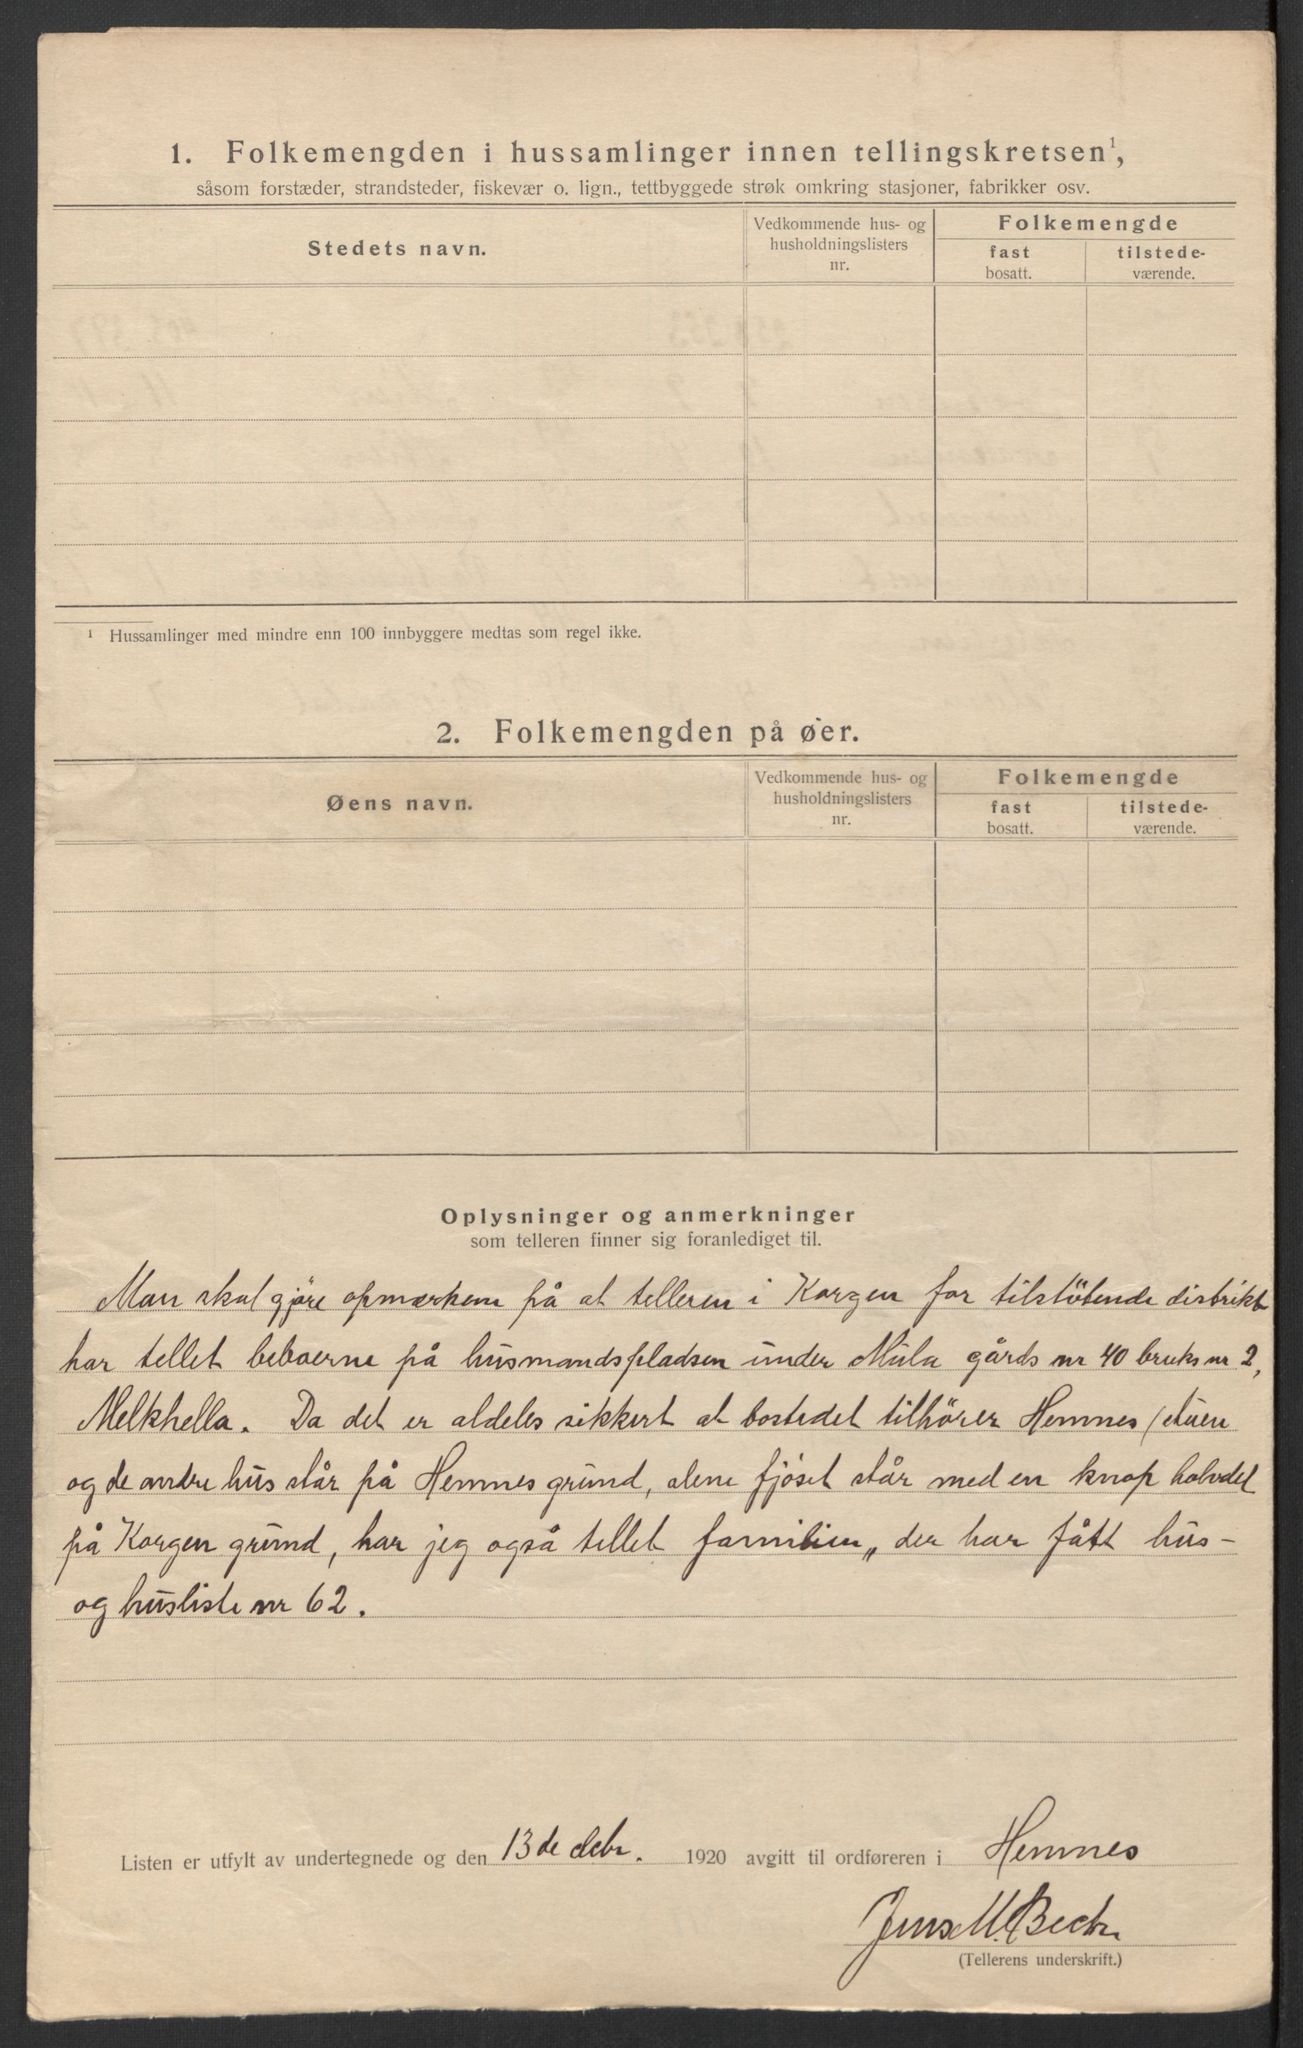 1. Folkemengden i hussamlinger innen tellingskretsen¹,
såsom forstæder, strandsteder, fiskevær o. lign., tettbyggede strøk omkring stasjoner, fabrikker osv.
Stedets navn.
Vedkommende hus- og
husholdningslisters
nr.
Folkemengde
fast
bosatt.
tilstede-
værende.
¹ Hussamlinger med mindre enn 100 innbyggere medtas som regel ikke.
2. Folkemengden på øer.
Øens navn.
Vedkommende hus- og
husholdningslisters
nr.
Folkemengde
fast
bosatt.
tilstede-
værende.
Oplysninger og anmerkninger
som telleren finner sig foranlediget til.
Man skal gjøre opmærksom på at telleren i Korgen for tilstötende distrikt
har tellet beboerne på husmandspladsen under Mula gårds nr 40 bruks nr 2,
Melkhella. Da det er aldeles sikkert at bostedet tilhörer Hemnes /stuen
og de andre hus står på Hemnes grund, alene fjöset står med en knap halvdel
på Korgen grund, har jeg også tellet familien, der har fått hus-
og husliste nr 62.
Listen er utfylt av undertegnede og den 13de debr. 1920 avgitt til ordføreren i Hemnes
Jens M. Bech
(Tellerens underskrift.)